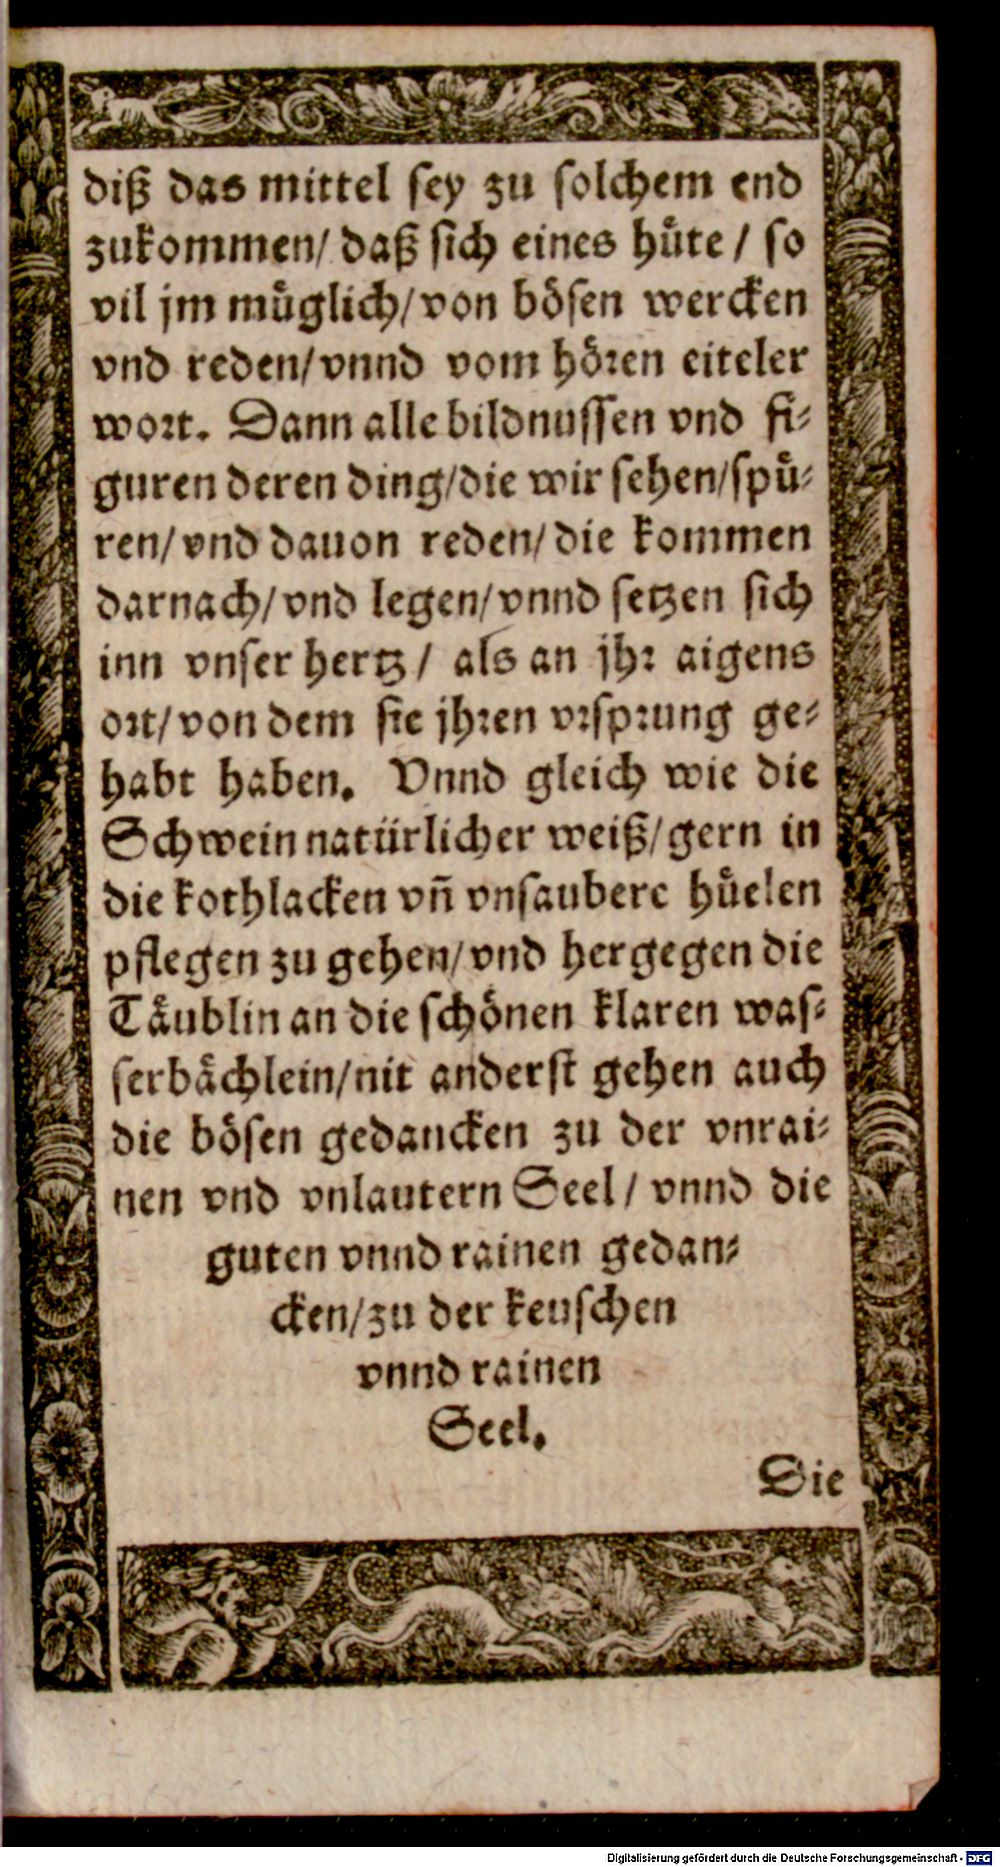 diß das mittel sey zu solchem end
zukommen/ daß sich eines hüte / so
vil jm müglich/ von bösen wercken
vnd reden/ vnnd vom hören eiteler
wort. Dann alle bildnussen vnd fi⸗
guren deren ding/ die wir sehen/ spü⸗
ren/ vnd dauon reden/ die kommen
darnach/ vnd legen/ vnnd setzen sich
inn vnser hertz / als an jhr aigens
ort/ von dem sie jhren vrsprung ge⸗
habt haben. Vnnd gleich wie die
Schwein natürlicher weiß/ gern in
die kothlacken vñ vnsaubere hüelen
pflegen zu gehen/ vnd hergegen die
Täublin an die schönen klaren was⸗
serbächlein/ nit anderst gehen auch
die bösen gedancken zu der vnrai⸗
nen vnd vnlautern Seel / vnnd die
guten vnnd rainen gedan⸗
cken/ zu der keuschen
vnnd rainen
Seel.
Die
Digitalisierung gefördert durch die Deutsche Forschungsgemeinschaft - DFG